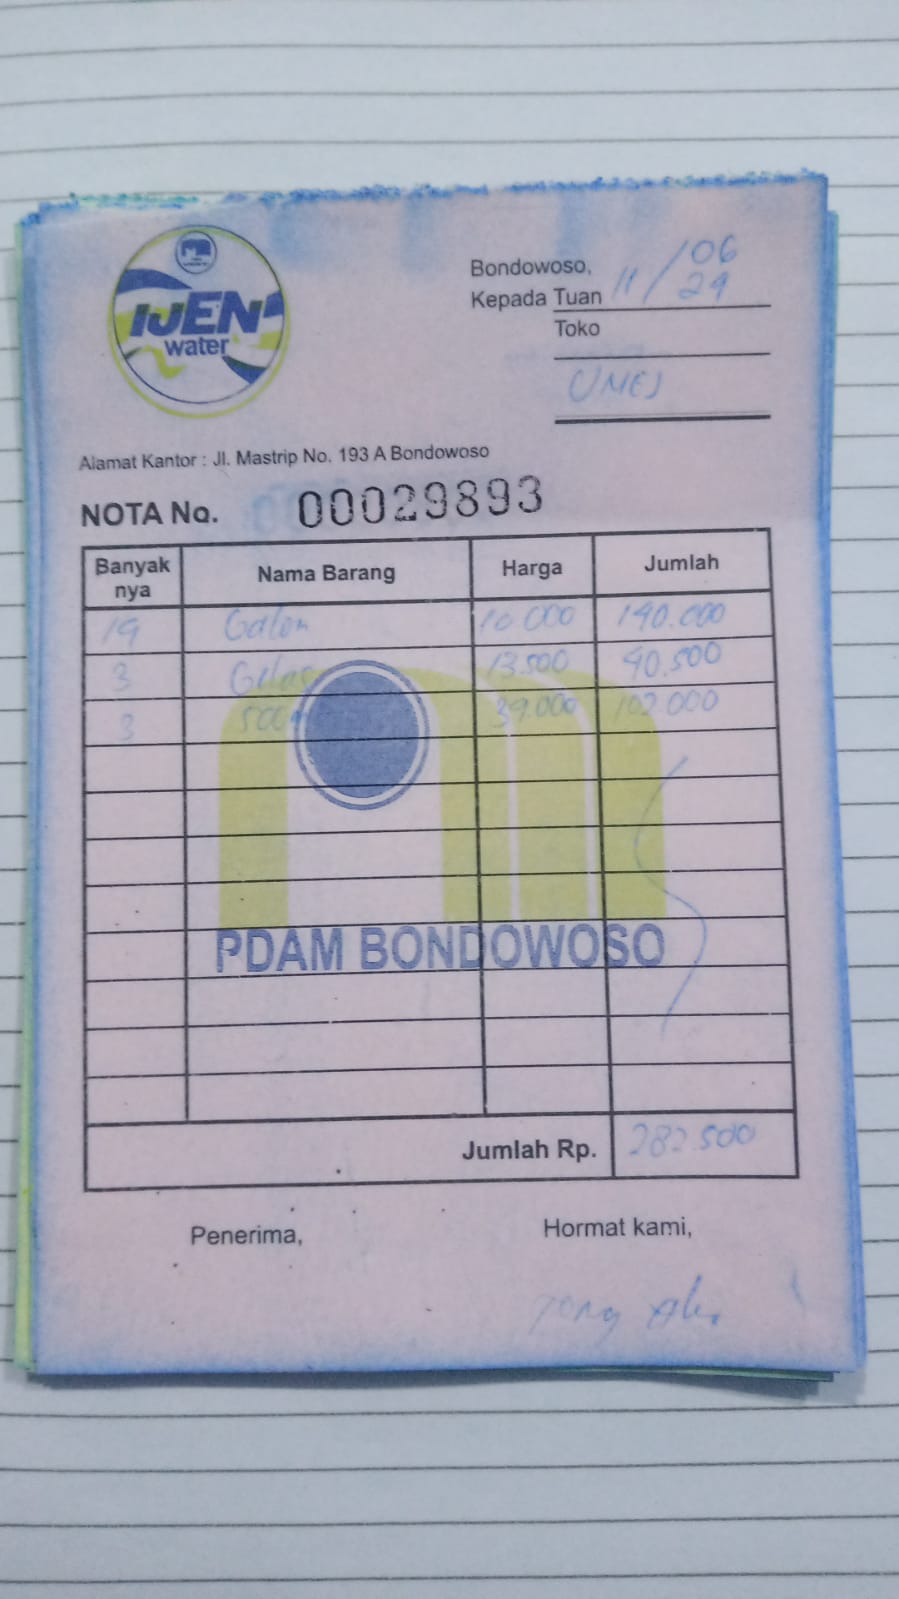 IJEN
water
Bondowoso, 11/06
Kepada Tuan 24
Toko
UMEJ
Alamat Kantor : Jl. Mastrip No. 193 A Bondowoso
NOTA No. 00029893
Banyak nya Nama Barang Harga Jumlah
14 Galon 10.000 140.000
3 Gelas 13.500 40.500
3 34.000 102.000
PDAM BONDOWOSO
Jumlah Rp. 282.500
Penerima, Hormat kami,